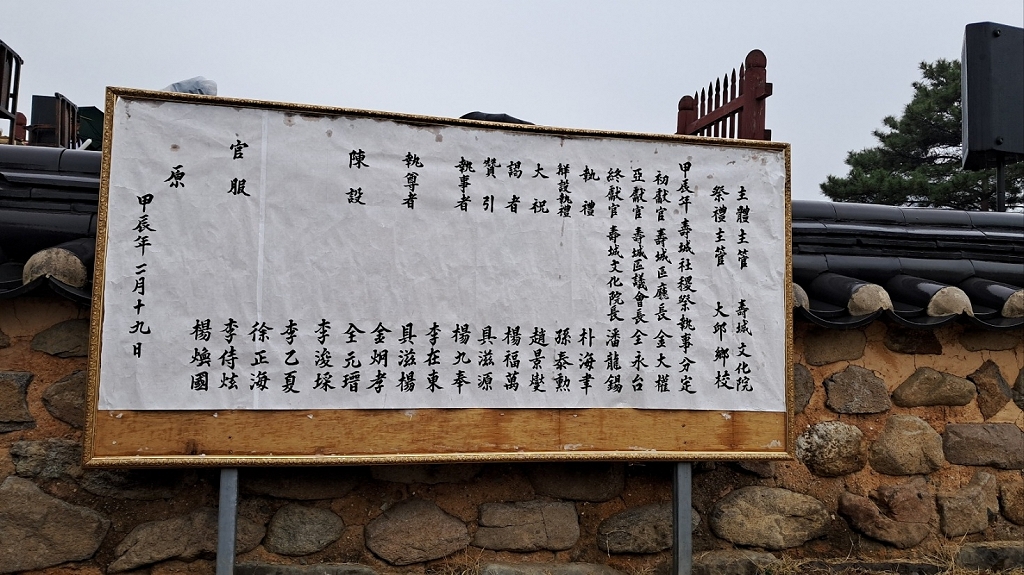 主體主管 壽城文化院
祭禮主管 大邱鄉校
甲辰年 壽城社稷祭執事分定
初獻官 壽城區廳長 金大權
亞獻官 壽城區議會長 全永台
終獻官 壽城文化院長 潘龍錫
執禮 朴海聿
解說執禮 孫泰勲
大祝 趙景燮
謁者 楊福萬
贊引 具滋源
執事者 楊九奉
李在東
執尊者 具滋楊
金炳孝
陳設 全元瑨
李浚埰
李乙夏
徐正海
官服 李侍炫
原 楊煥國
甲辰年 二月十九日